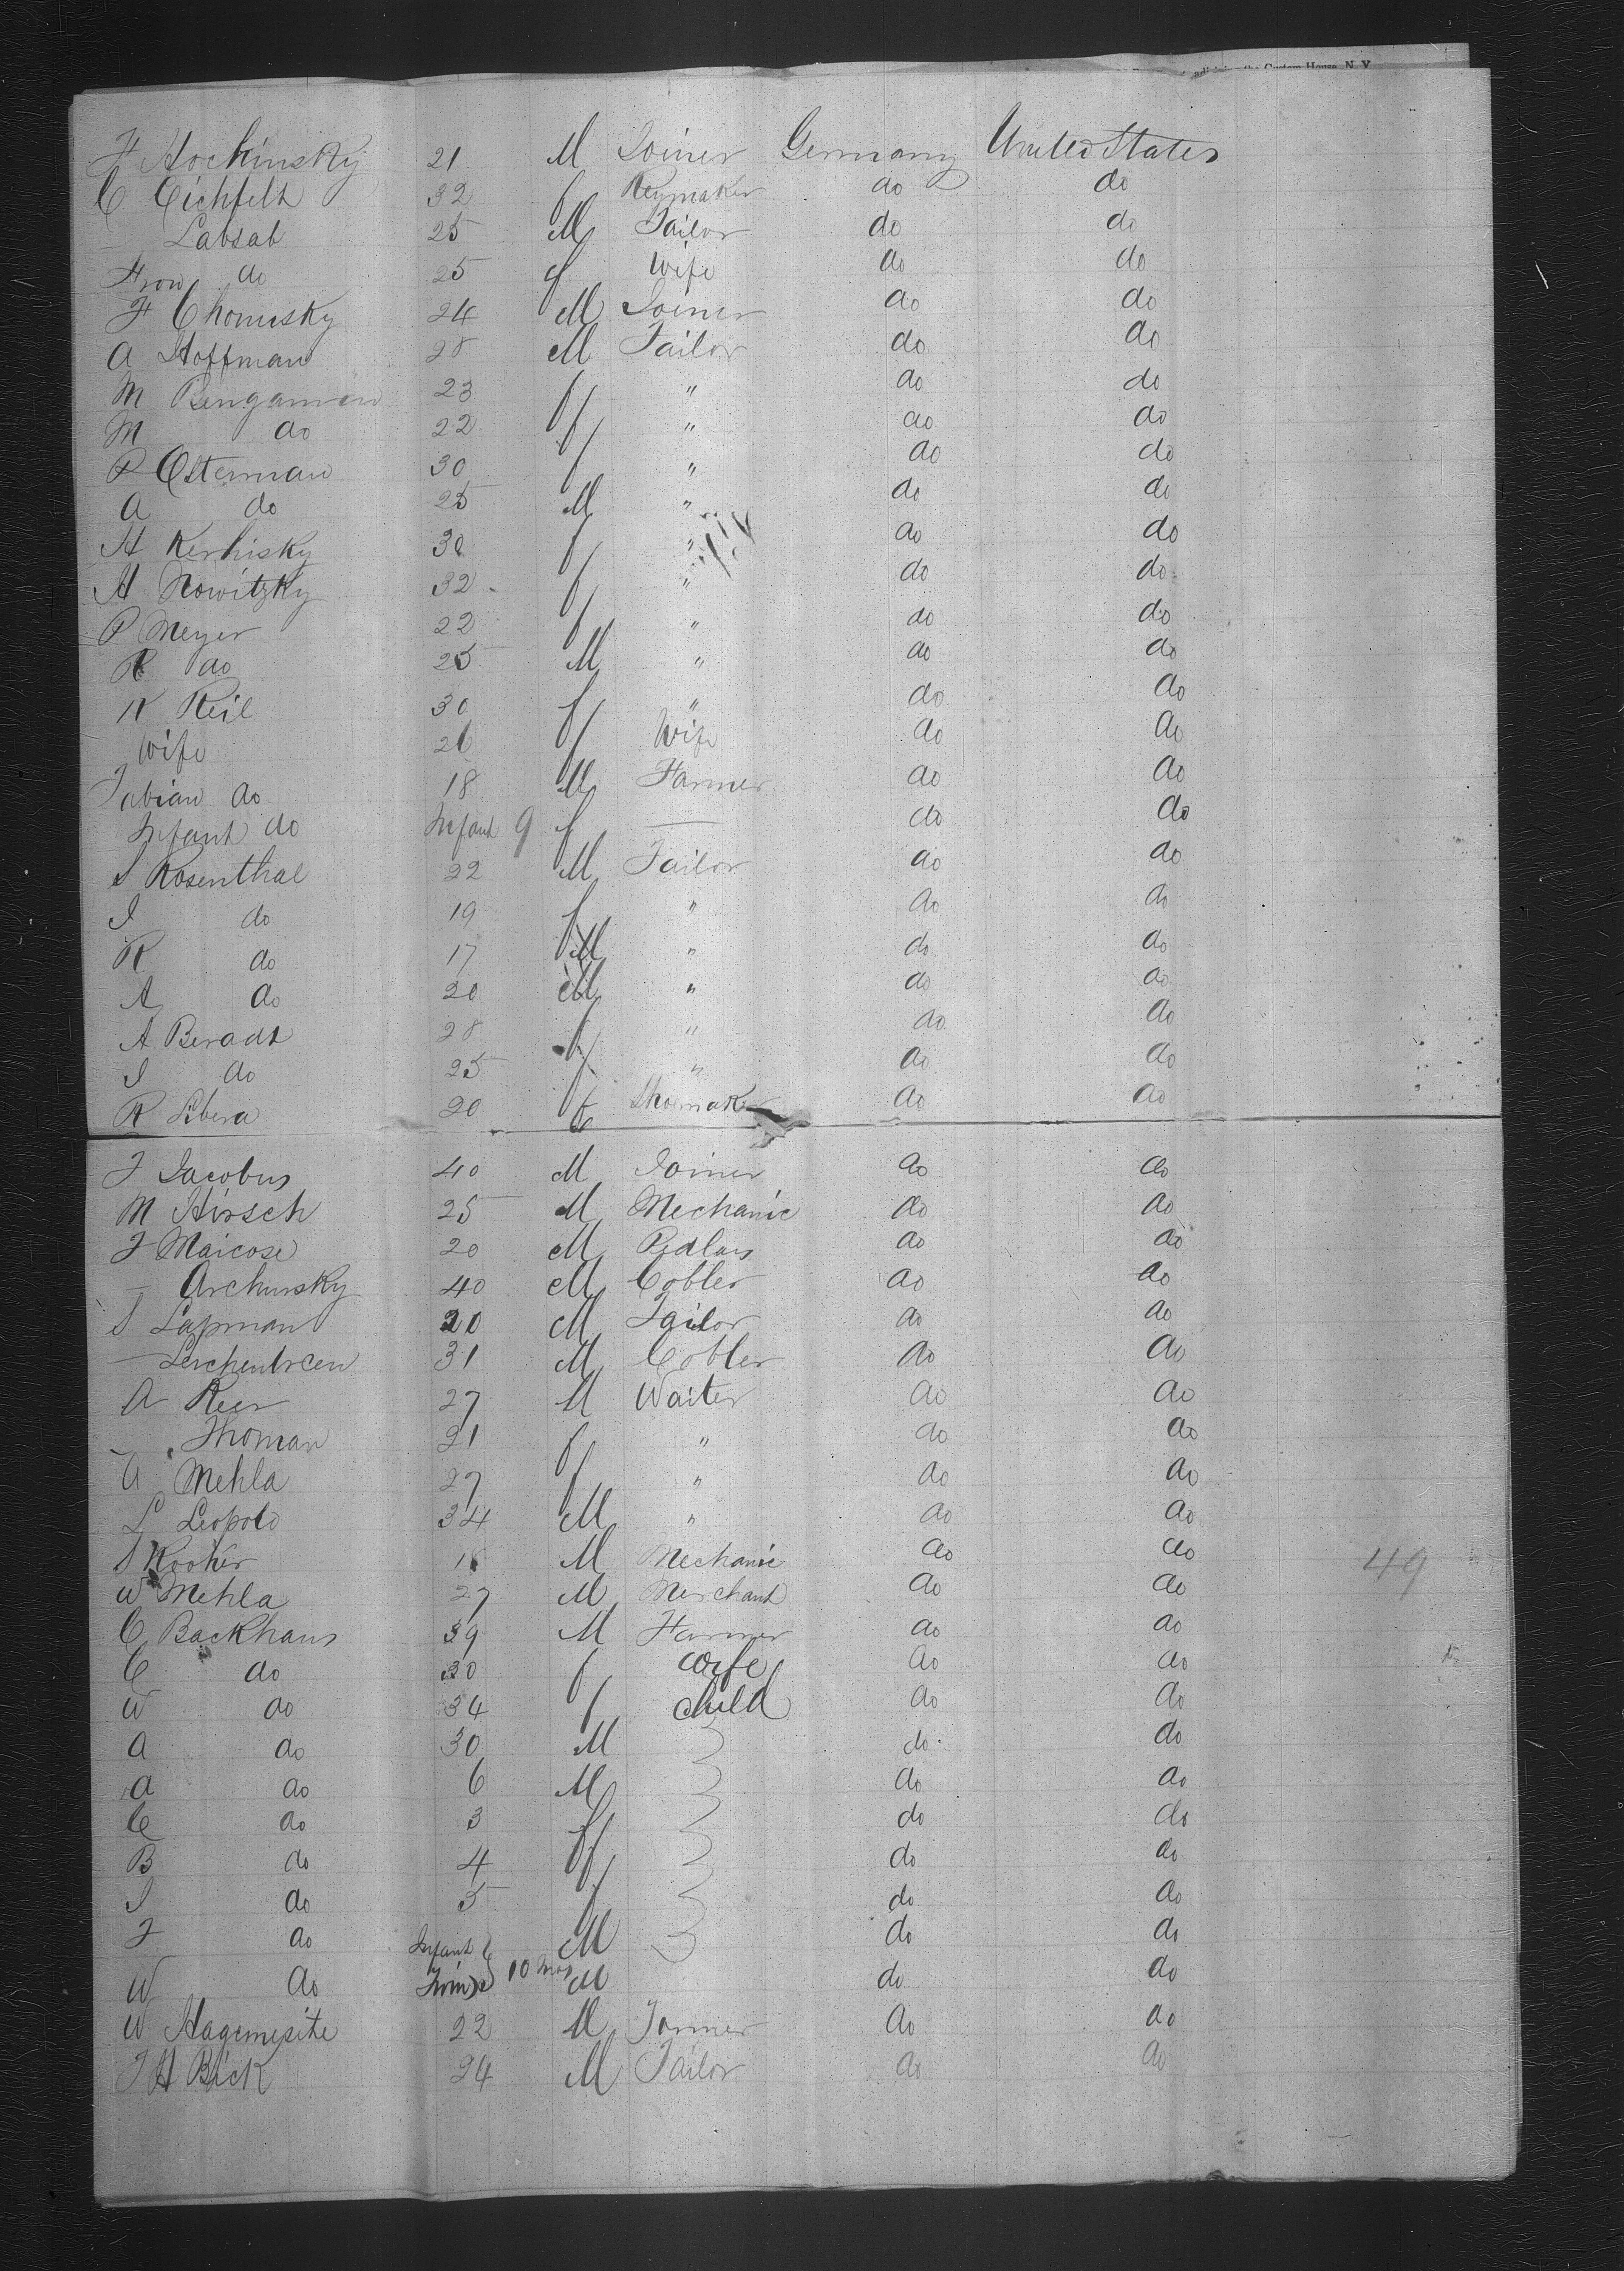 adjoining the Custom House, N.Y.
F Hockinsky 21 M Joiner Germany United States
C Eichfelt 32 f Keymaker do do
— Labsab 25 M Tailor do do
Frow do 25 f Wife do do
F Chomusky 24 M Joiner do do
A Hoffman 28 M Tailor do do
M Bengamin 23 f " do do
M do 22 f " do do
P Osterman 30 f " do do
A do 25 M " do do
H Kerhisky 30 f " do do
H Nowitzky 32 f " do do
P Meyer 22 f " do do
R do 25 M " do do
N Keil 30 f " do do
Wife 26 f Wife do do
Fabian do 18 M Farmer do do
Infant do Infant 9 f — do do
S Rosenthal 22 M Tailor do do
I do 19 f " do do
R do 17 M " do do
A do 20 M " do do
A Beradt 28 f " do do
I do 25 f " do do
R Libera 20 f Shoemaker do do
J Jacobus 40 M Joiner do do
M Hirsch 25 M Mechanic do do
F Maicose 20 M Pedlar do do
— Archursky 40 M Cobler do do
S Lapman 20 M Tailor do do
— Lerchentreen 31 M Cobler do do
A Reer 27 M Waiter do do
— Thoman 21 f " do do
A Mehla 27 f " do do
L Leopold 34 M " do do
S Kooker 18 M Mechanic do do 49
W Mehla 27 M Merchant do do
C Backhaus 39 M Farmer do do
C do 30 f wife do do
W do 34 f child do do
A do 30 M do do
A do 6 M do do
C do 3 f do do
B do 4 f do do
I do 5 f do do
F do Infant M do do
W do Twins 10 mos M do do
W Hagemesite 22 M Farmer do do
J H Bick 24 M Tailor do do